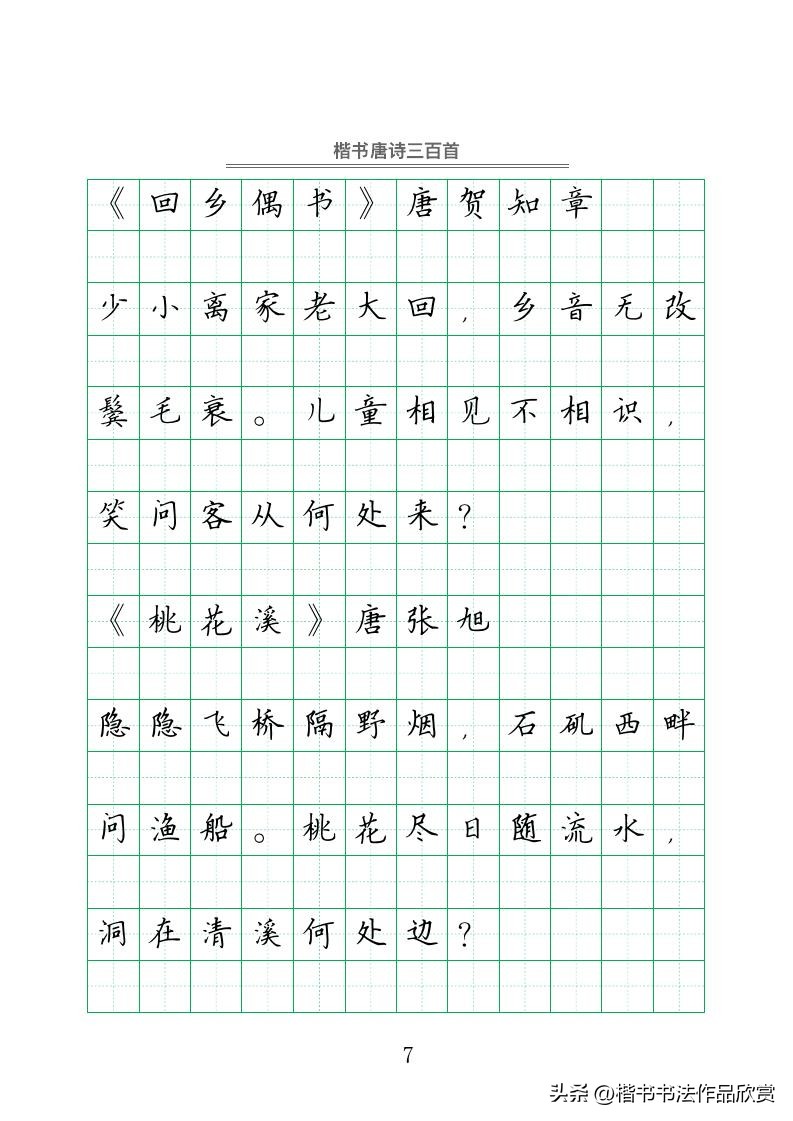 楷书唐诗三百首
《回乡偶书》唐贺知章
少小离家老大回，乡音无改
鬓毛衰。儿童相见不相识，
笑问客从何处来？
《桃花溪》唐张旭
隐隐飞桥隔野烟，石矶西畔
问渔船。桃花尽日随流水，
洞在清溪何处边？
7
头条 @楷书书法作品欣赏